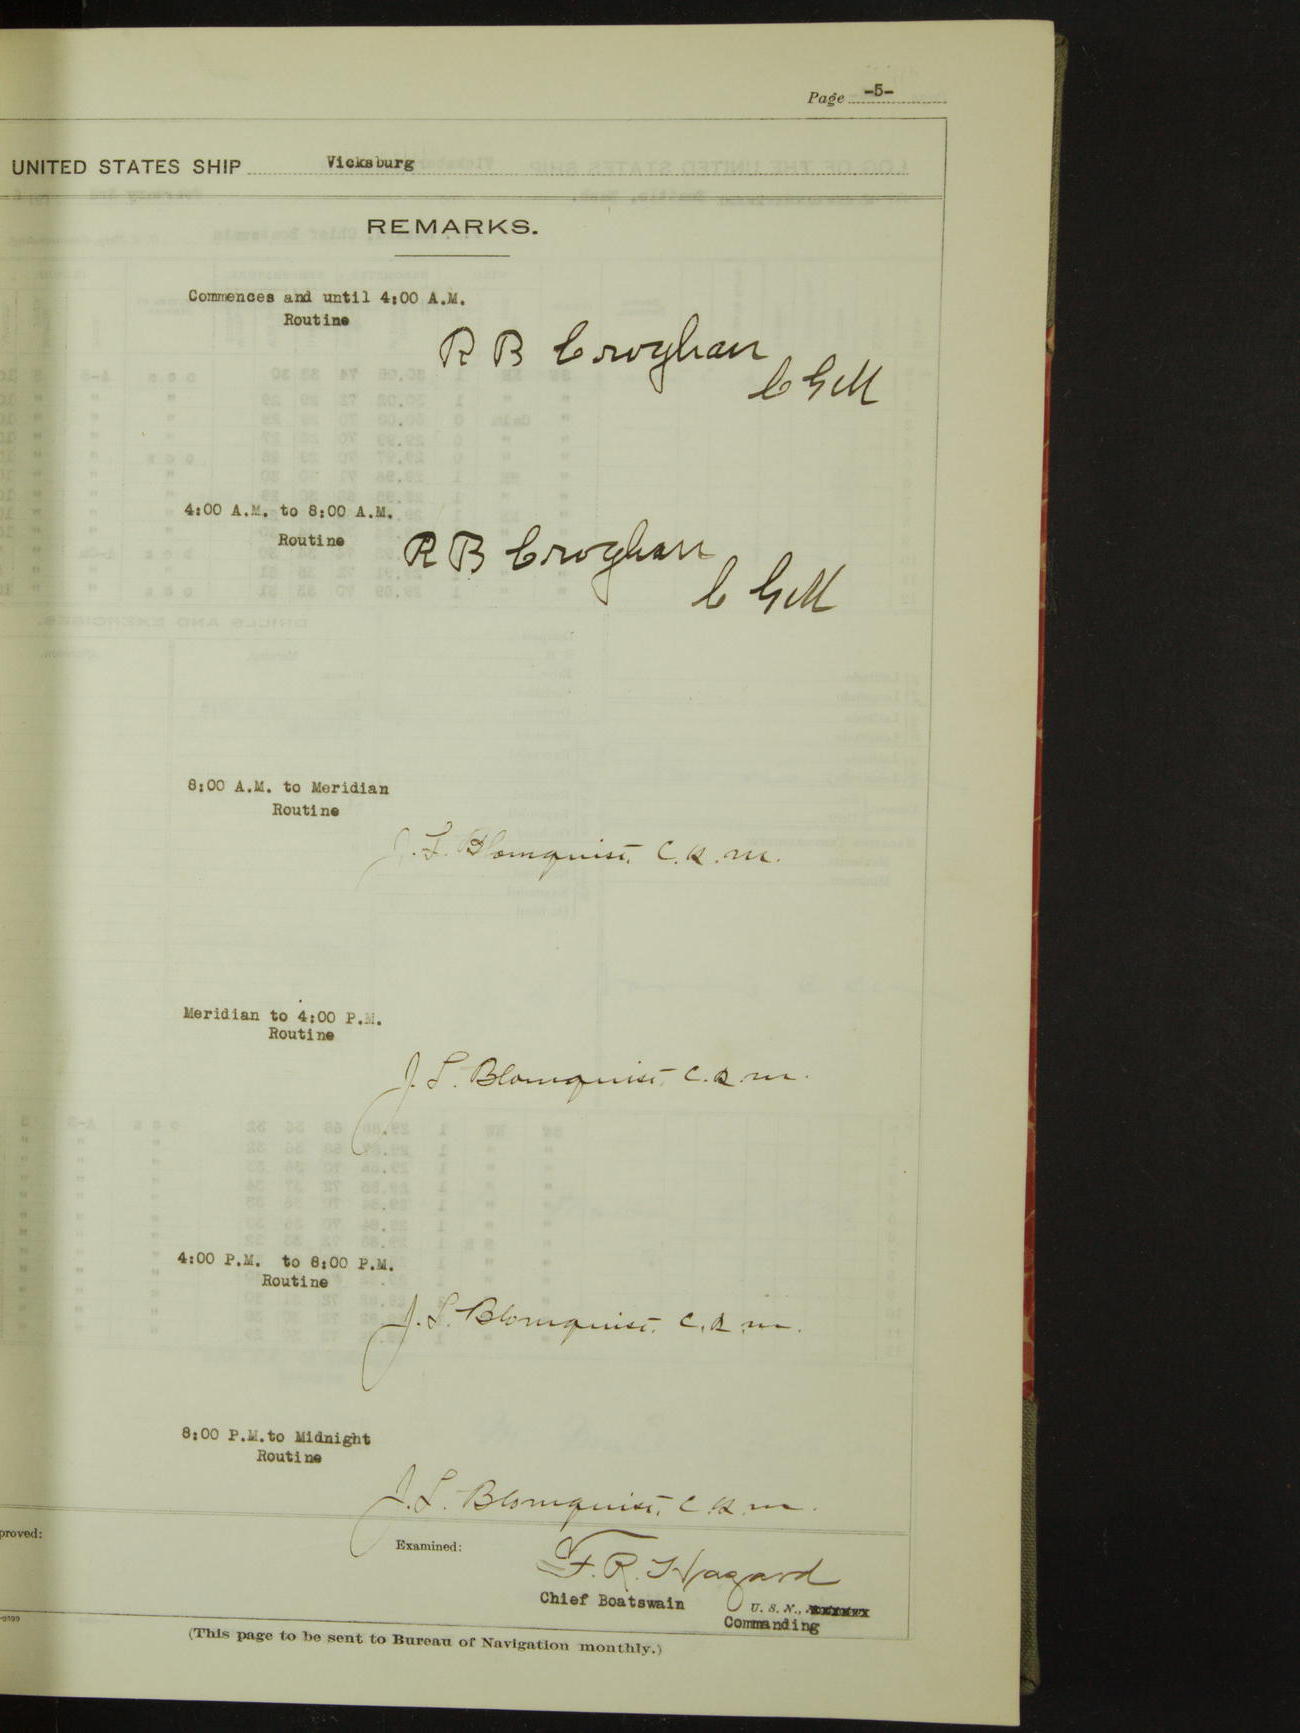 Page -5-
UNITED STATES SHIP Vicksburg
REMARKS.
Commences and until 4:00 A.M.
Routine
R B Croghan
C G M
4:00 A.M. to 8:00 A.M.
Routine
R B Croghan
C G M
8:00 A.M. to Meridian
Routine
J. L. Blomquist, C.Q.M.
Meridian to 4:00 P.M.
Routine
J. L. Blomquist, C.Q.M.
4:00 P.M. to 8:00 P.M.
Routine
J. L. Blomquist, C.Q.M.
8:00 P.M.to Midnight
Routine
J. L. Blomquist, C.Q.M.
proved:
Examined:
F. R. Hazard
Chief Boatswain
U. S. N.,
Commanding
(This page to be sent to Bureau of Navigation monthly.)